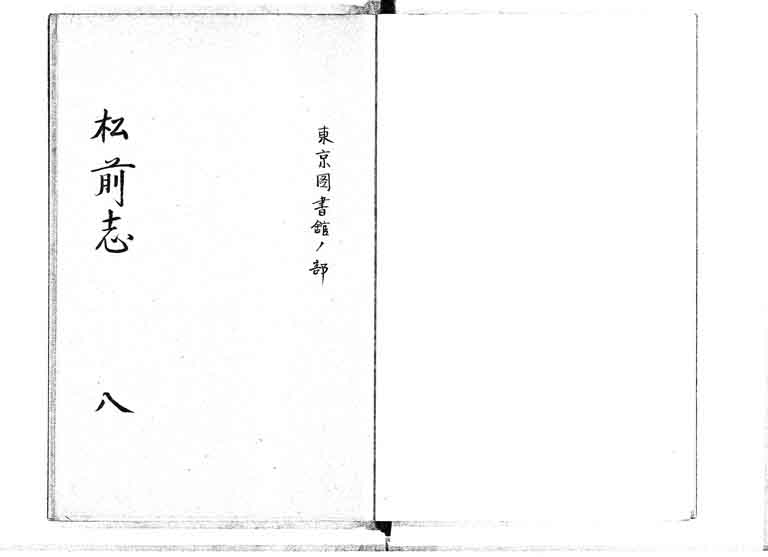 東京圖書館ノ部
松前志 八